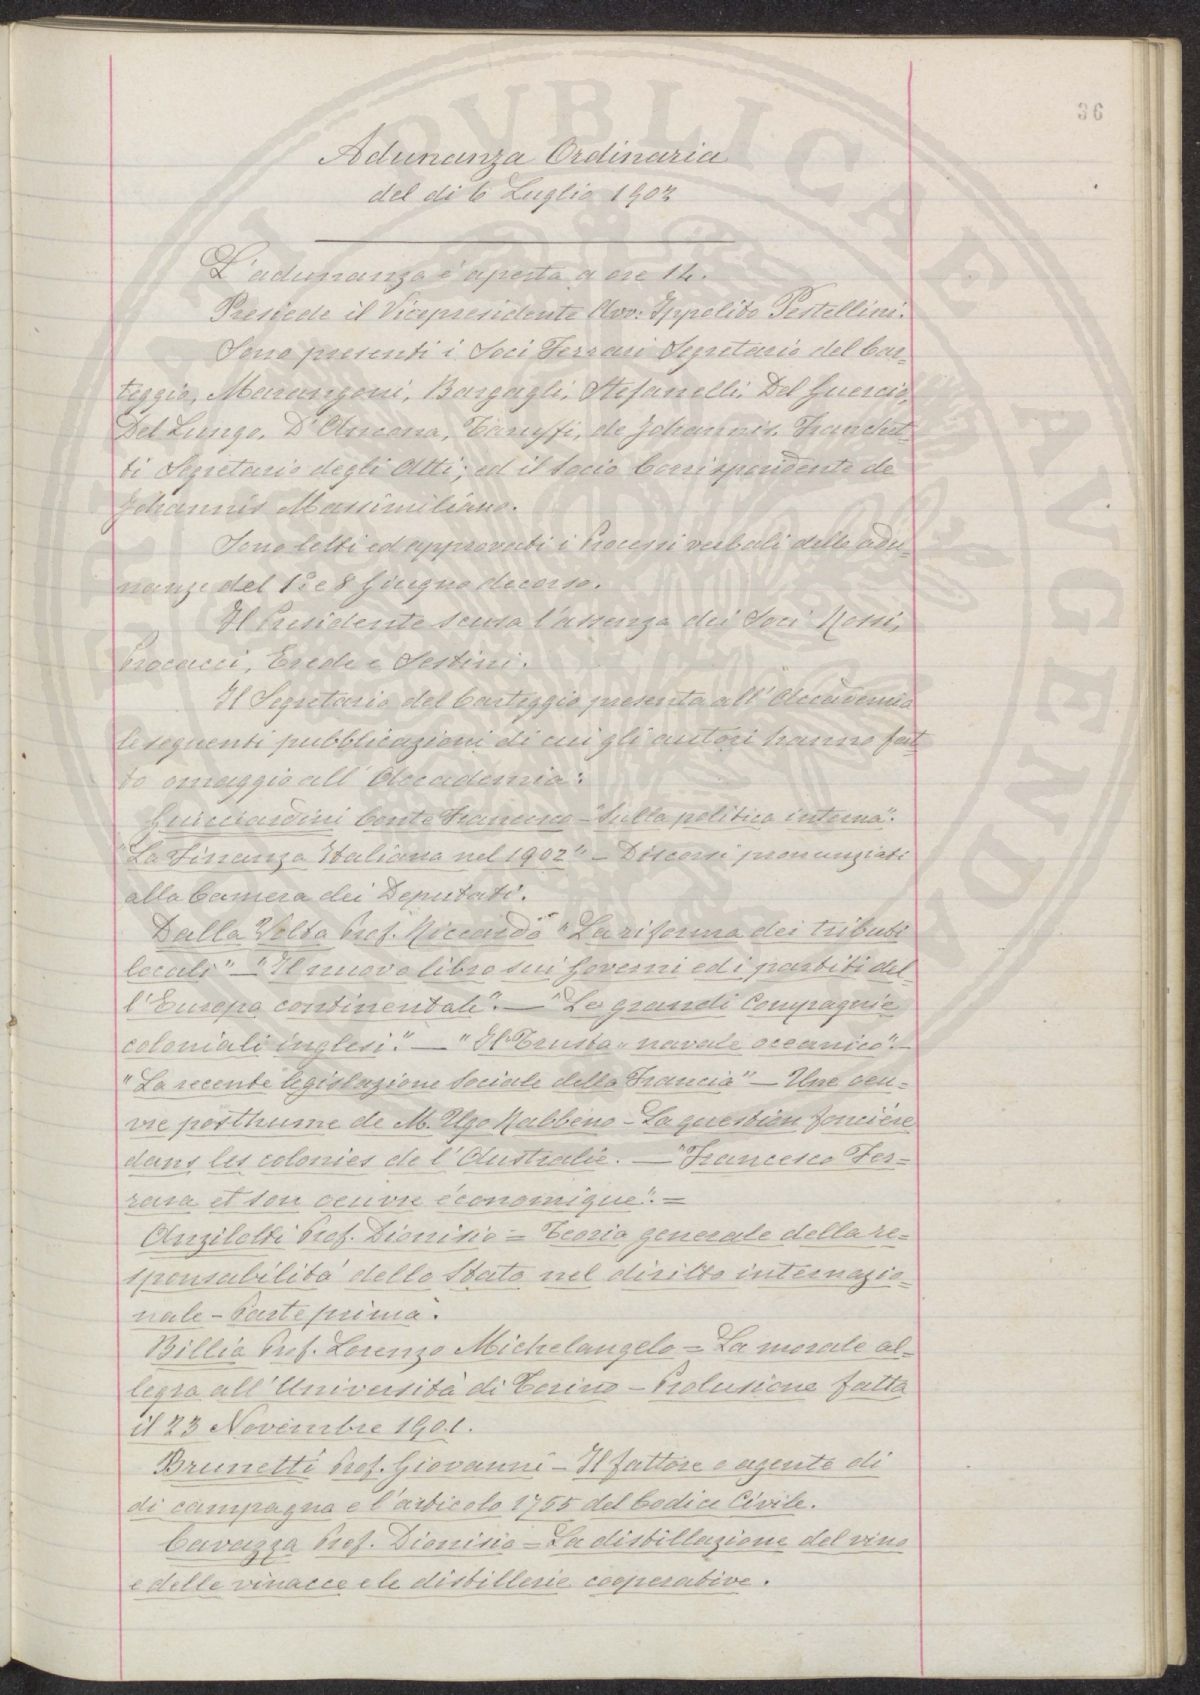 36
Adunanza Ordinaria
del dì 6 Luglio 1903
L'adunanza è aperta a ore 14.
Presiede il Vicepresidente Avv: Ippolito Pestellini.
Sono presenti i Soci Ferrari Segretario del Car=
teggio, Marangoni, Bargagli, Stefanelli, Del Guercio,
Del Lungo, D'Ancona, de Johannis, Franchet=
ti Segretario degli Atti; ed il Socio Corrispondente de
Johannis Massimiliano.
Sono letti ed approvati i Processi verbali delle adu=
nanze del 1° e 8 Giugno decorso.
Il Presidente scusa l'assenza dei Soci Rossi,
Procacci, Erede e Sestini.
Il Segretario del Carteggio presenta all'Accademia
le seguenti pubblicazioni di cui gli autori hanno fat
to omaggio all'Accademia:
Guicciardini Conte Francesco - "Sulla politica interna".
"La Finanza Italiana nel 1902" - Discorsi pronunziati
alla Camera dei Deputati.
Dalla Volta Prof. Riccardo "La riforma dei tributi
locali" - "Il nuovo libro sui Governi ed i partiti del=
l'Europa continentale". - "Le grandi Compagnie
coloniali inglesi." - "Il "Trust" navale oceanico". -
"La recente legislazione sociale della Francia" - Une oeu=
vre posthume de M. Ugo Rabbeno - La question foncière
dans les colonies de l'Australie. - "Francesco Fer=
rara et son oeuvre économique". =
Anzilotti Prof. Dionisio = Teoria generale della re=
sponsabilità dello Stato nel diritto internazio=
nale - Parte prima".
Billia Prof. Lorenzo Michelangelo = La morale al=
legra all'Università di Torino - Prolusione fatta
il 23 Novembre 1901.
Brunetti Prof. Giovanni - Il fattore o agente di
di campagna e l'articolo 1755 del Codice Civile.
Cavazza Prof. Dionisio = La distillazione del vino
e delle vinacce e le distillerie cooperative.
PUBLICAE AUGENDA